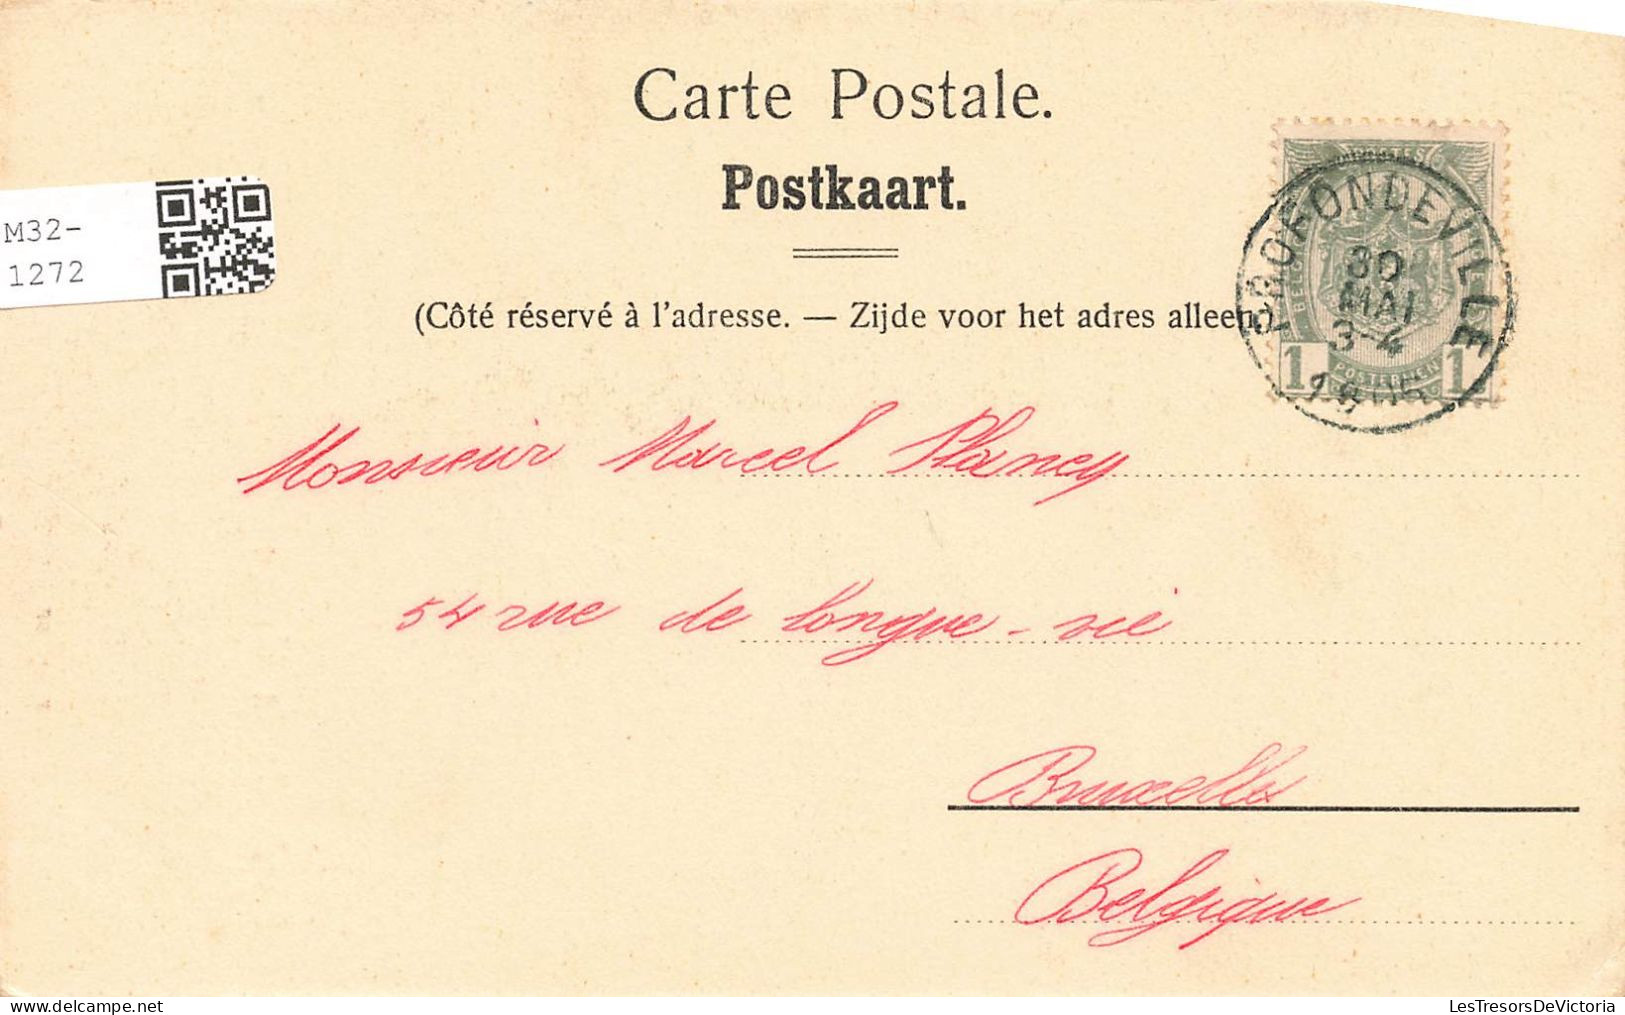 Carte Postale.
Postkaart.
M32-
1272
(Côté réservé à l'adresse. — Zijde voor het adres alleen)
POSTES
PROFONDEVILLE
30
MAI
3-4
1 1
POSTERIJEN
Monsieur Marcel Plancy
54 rue de longue-vie
Bruxelles
Belgique
LesTresorsDeVictoria